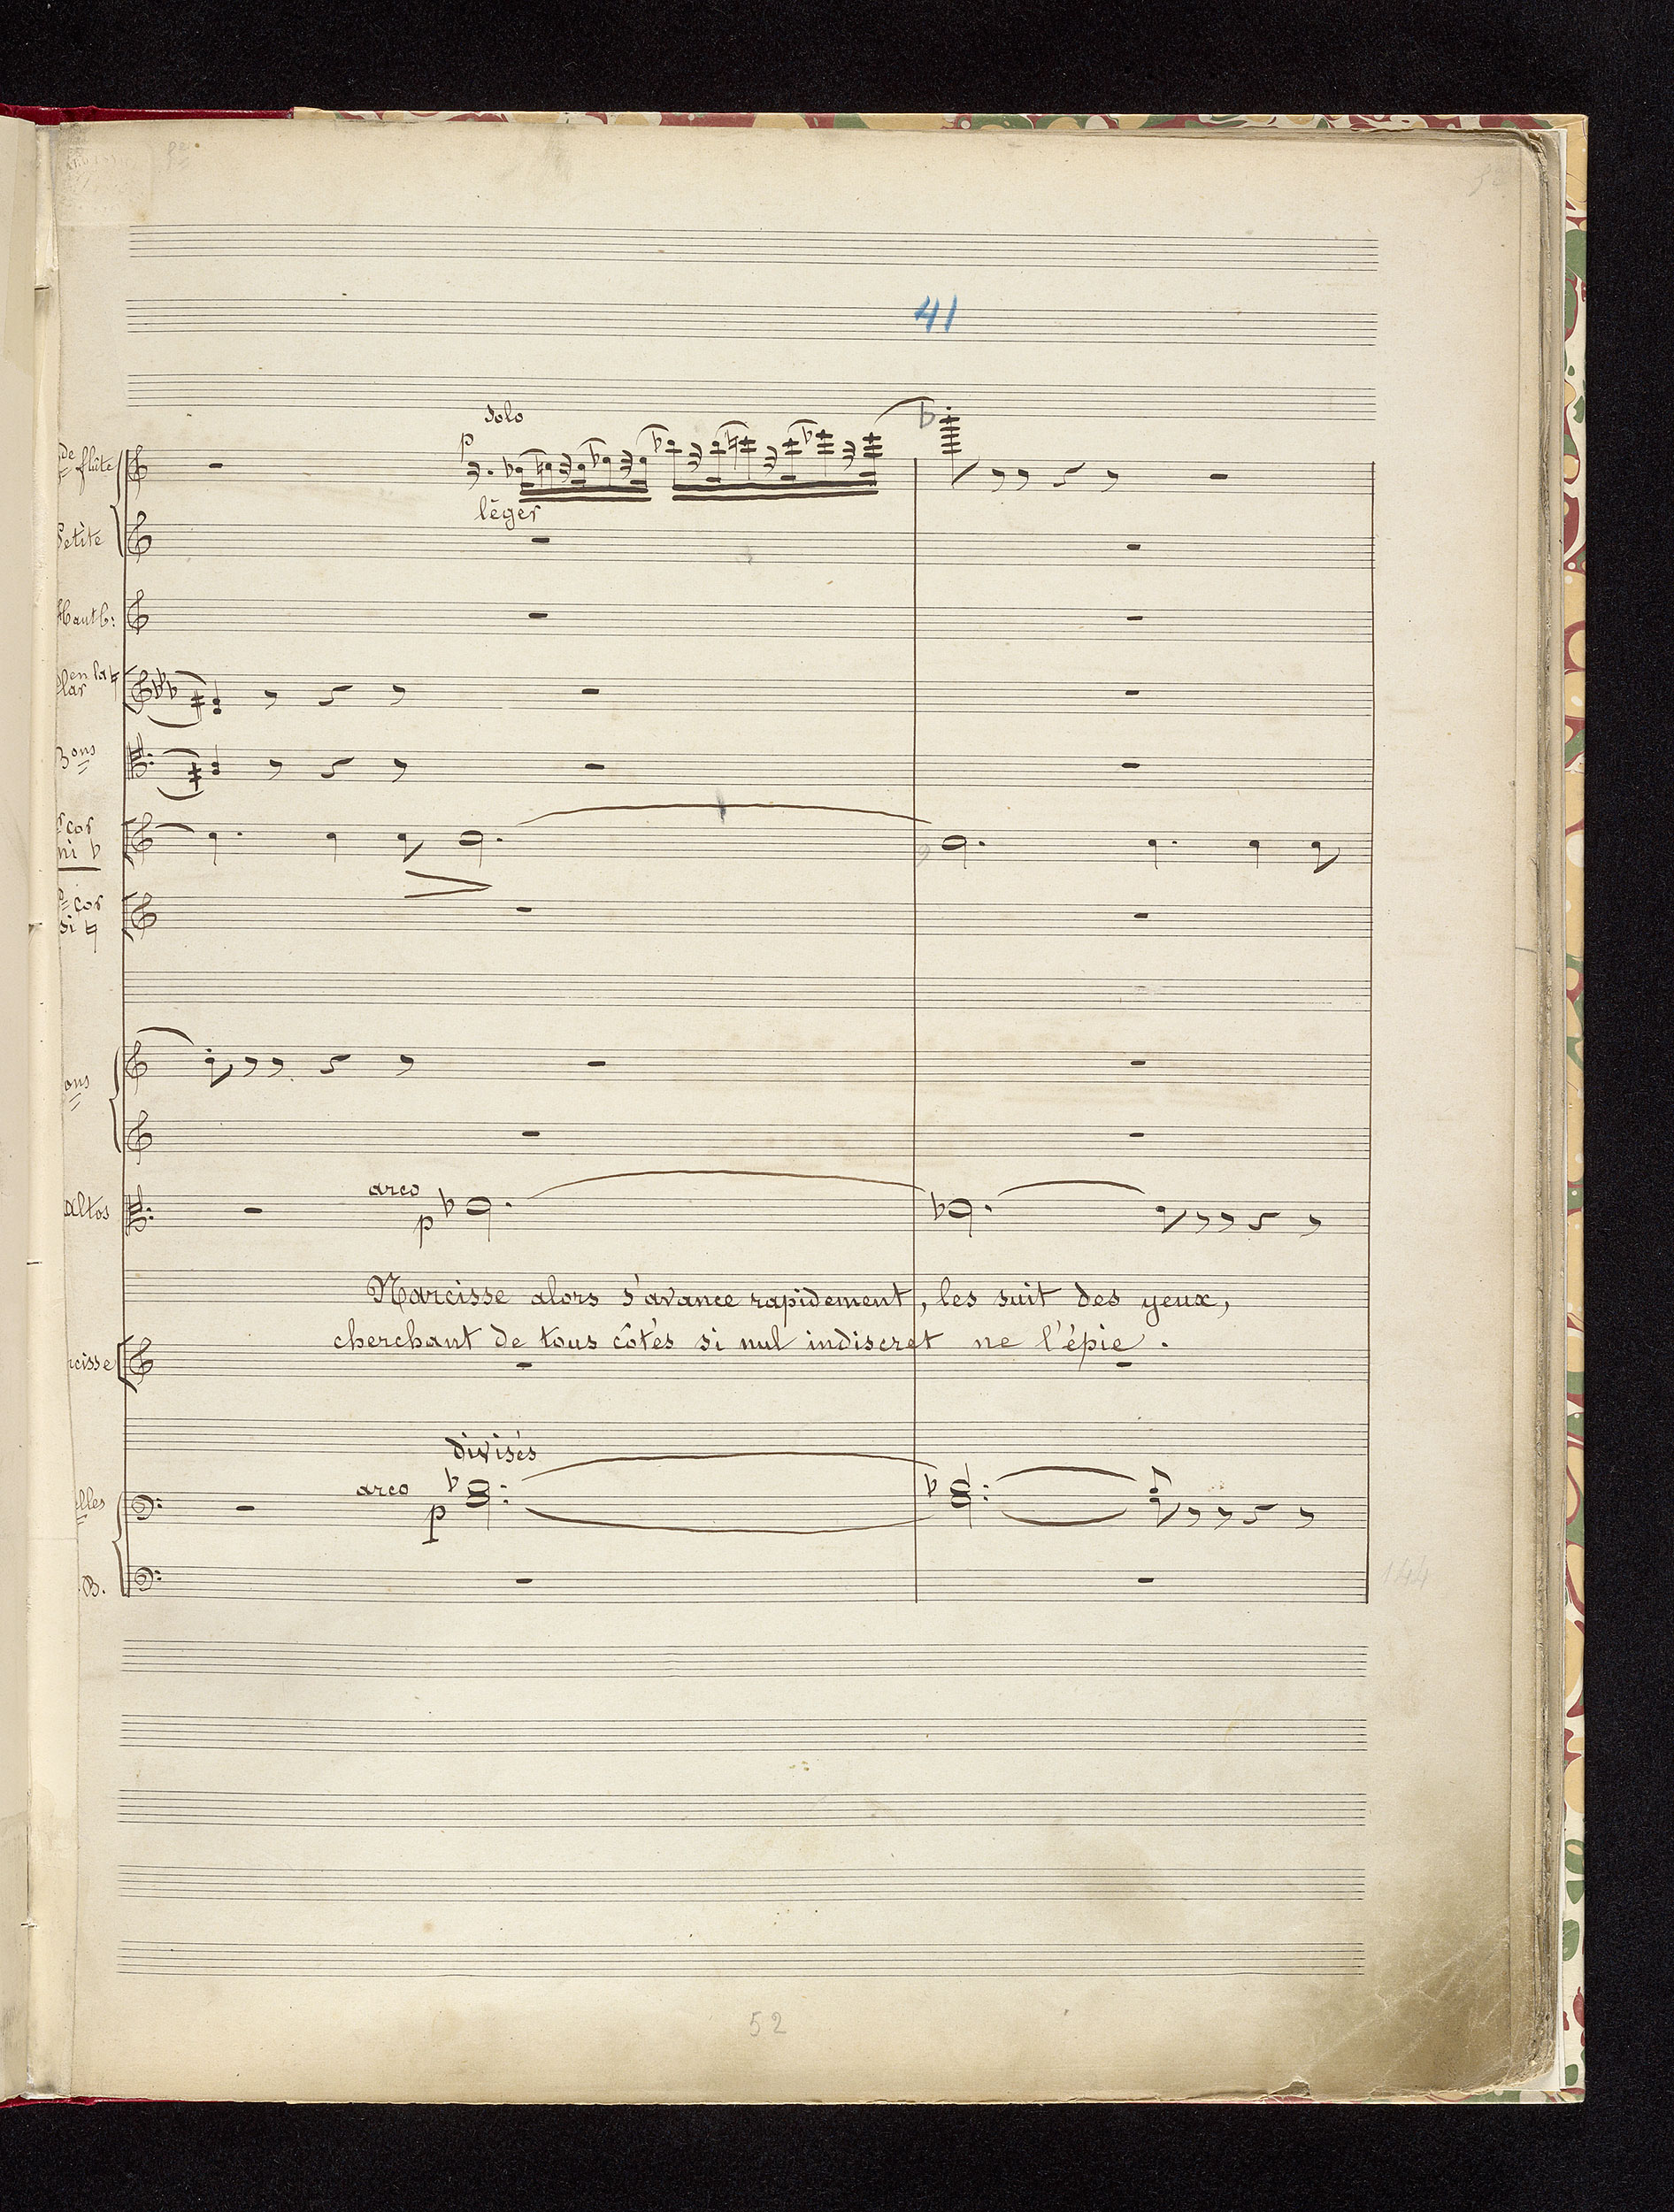 41
solo
p
de
flûte
léger
Petite
Hautb:
en la ♮
Clar
Bons
cor
mi b
cor
si ♮
ons
arco
Altos
p
Narcisse alors s'avance rapidement, les suit des yeux,
cherchant de tous côtés si nul indiscret ne l'épie.
cisse
divisés
arco
elles
p
B.
144
52